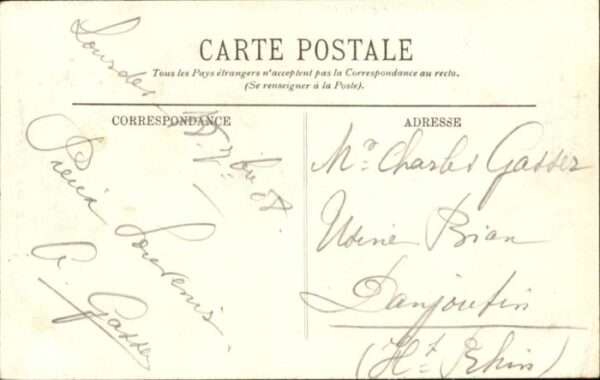 CARTE POSTALE
Tous les Pays étrangers n'acceptent pas la Correspondance au recto.
(Se renseigner à la Poste).
CORRESPONDANCE
ADRESSE
Lourdes
08.
Souvenirs.
Gasser
Mr. Charles Gasser
Usine Brian
Danjoutin
(Ht. Rhin)